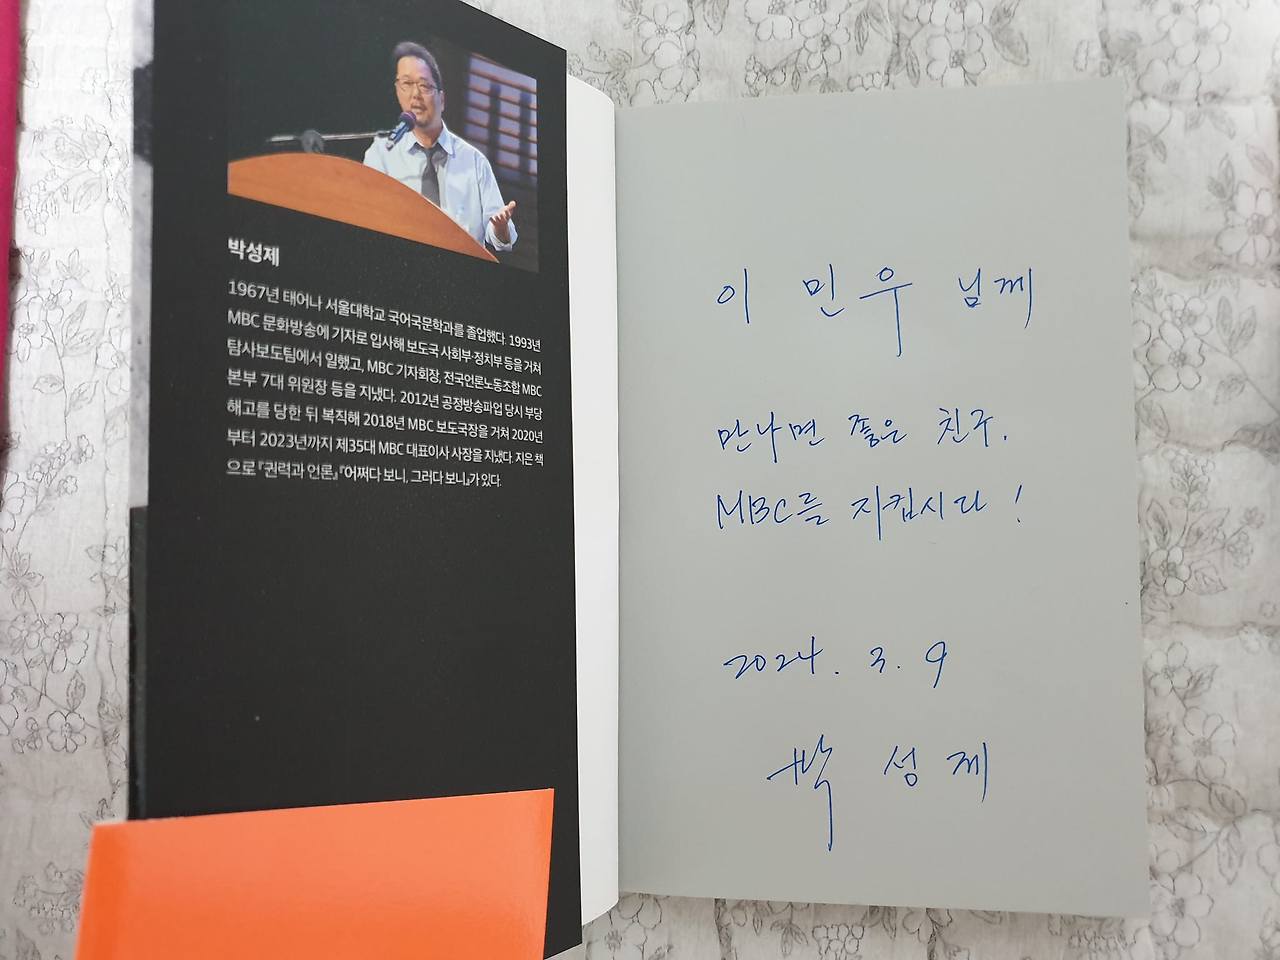 박성제
1967년 태어나 서울대학교 국어국문학과를 졸업했다. 1993년
MBC 문화방송에 기자로 입사해 보도국 사회부·정치부 등을 거쳐
탐사보도팀에서 일했고, MBC 기자회장, 전국언론노동조합 MBC
본부 7대 위원장 등을 지냈다. 2012년 공정방송파업 당시 부당
해고를 당한 뒤 복직해 2018년 MBC 보도국장을 거쳐 2020년
부터 2023년까지 제35대 MBC 대표이사 사장을 지냈다. 지은 책
으로 『권력과 언론』 『어쩌다 보니, 그러다 보니』가 있다.
이 민우 님께
만나면 좋은 친구.
MBC를 지킵시다!
2024. 3. 9
박 성 제